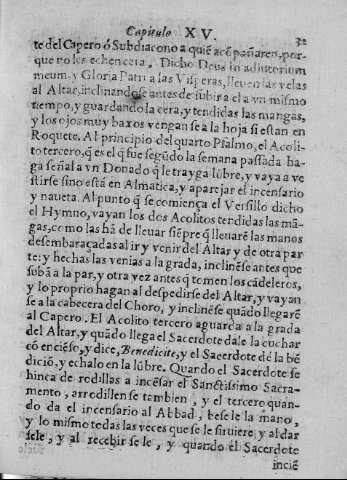 Capitulo XV. 32
te del Capero ó Subdiacono a quiē acōpañaren, por-
que no les echen cera. Dicho Deus in adiutorium
meum y Gloria Patri a las Visperas, lleuen las velas
al Altar, inclinandose antes de subir a el a vn mismo
tiempo, y guardando la cera, y tendidas las mangas,
y los ojos muy baxos vengan se a la hoja si estan en
Roquete. Al principio del quarto Psalmo, el Acoli-
to tercero, q̄ es el q̄ fue segūdo la semana passada ha-
ga señal a vn Donado q̄ le trayga lūbre, y vaya a ve
stirse sino està en Almatica, y aparejar el incensario
y naueta. Al punto q̄ se comiença el Versillo dicho
el Hymno, vayan los dos Acolitos tendidas las mā-
gas, como las hā de lleuar siēpre q̄ lleuarē las manos
desembaraçadas al ir y venir del Altar y de otra par
te: y hechas las venias a la grada, inclinēse antes que
subā a la par, y otra vez antes q̄ tomen los cādeleros,
y lo proprio hagan al despedirse del Altar, y vayan
se a la cabecera del Choro, y inclinēse quādo llegarē
al Capero. El Acolito tercero aguarda a la grada
del Altar, y quādo llega el Sacerdote dale la cuchar
cō enciēse, y dice, Benedicite, y el Sacerdote dé la bē
diciō, y echalo en la lūbre. Quando el Sacerdote se
hinca de rodillas a incēsar el Sanctissimo Sacra-
mento, arrodillense tambien, y el tercero quan-
do da el incensario al Abbad, bese le la mano,
y lo mismo todas las veces que se le siruiere y al dar
sele, y al recebirsele, y quando el Sacerdote
inciē